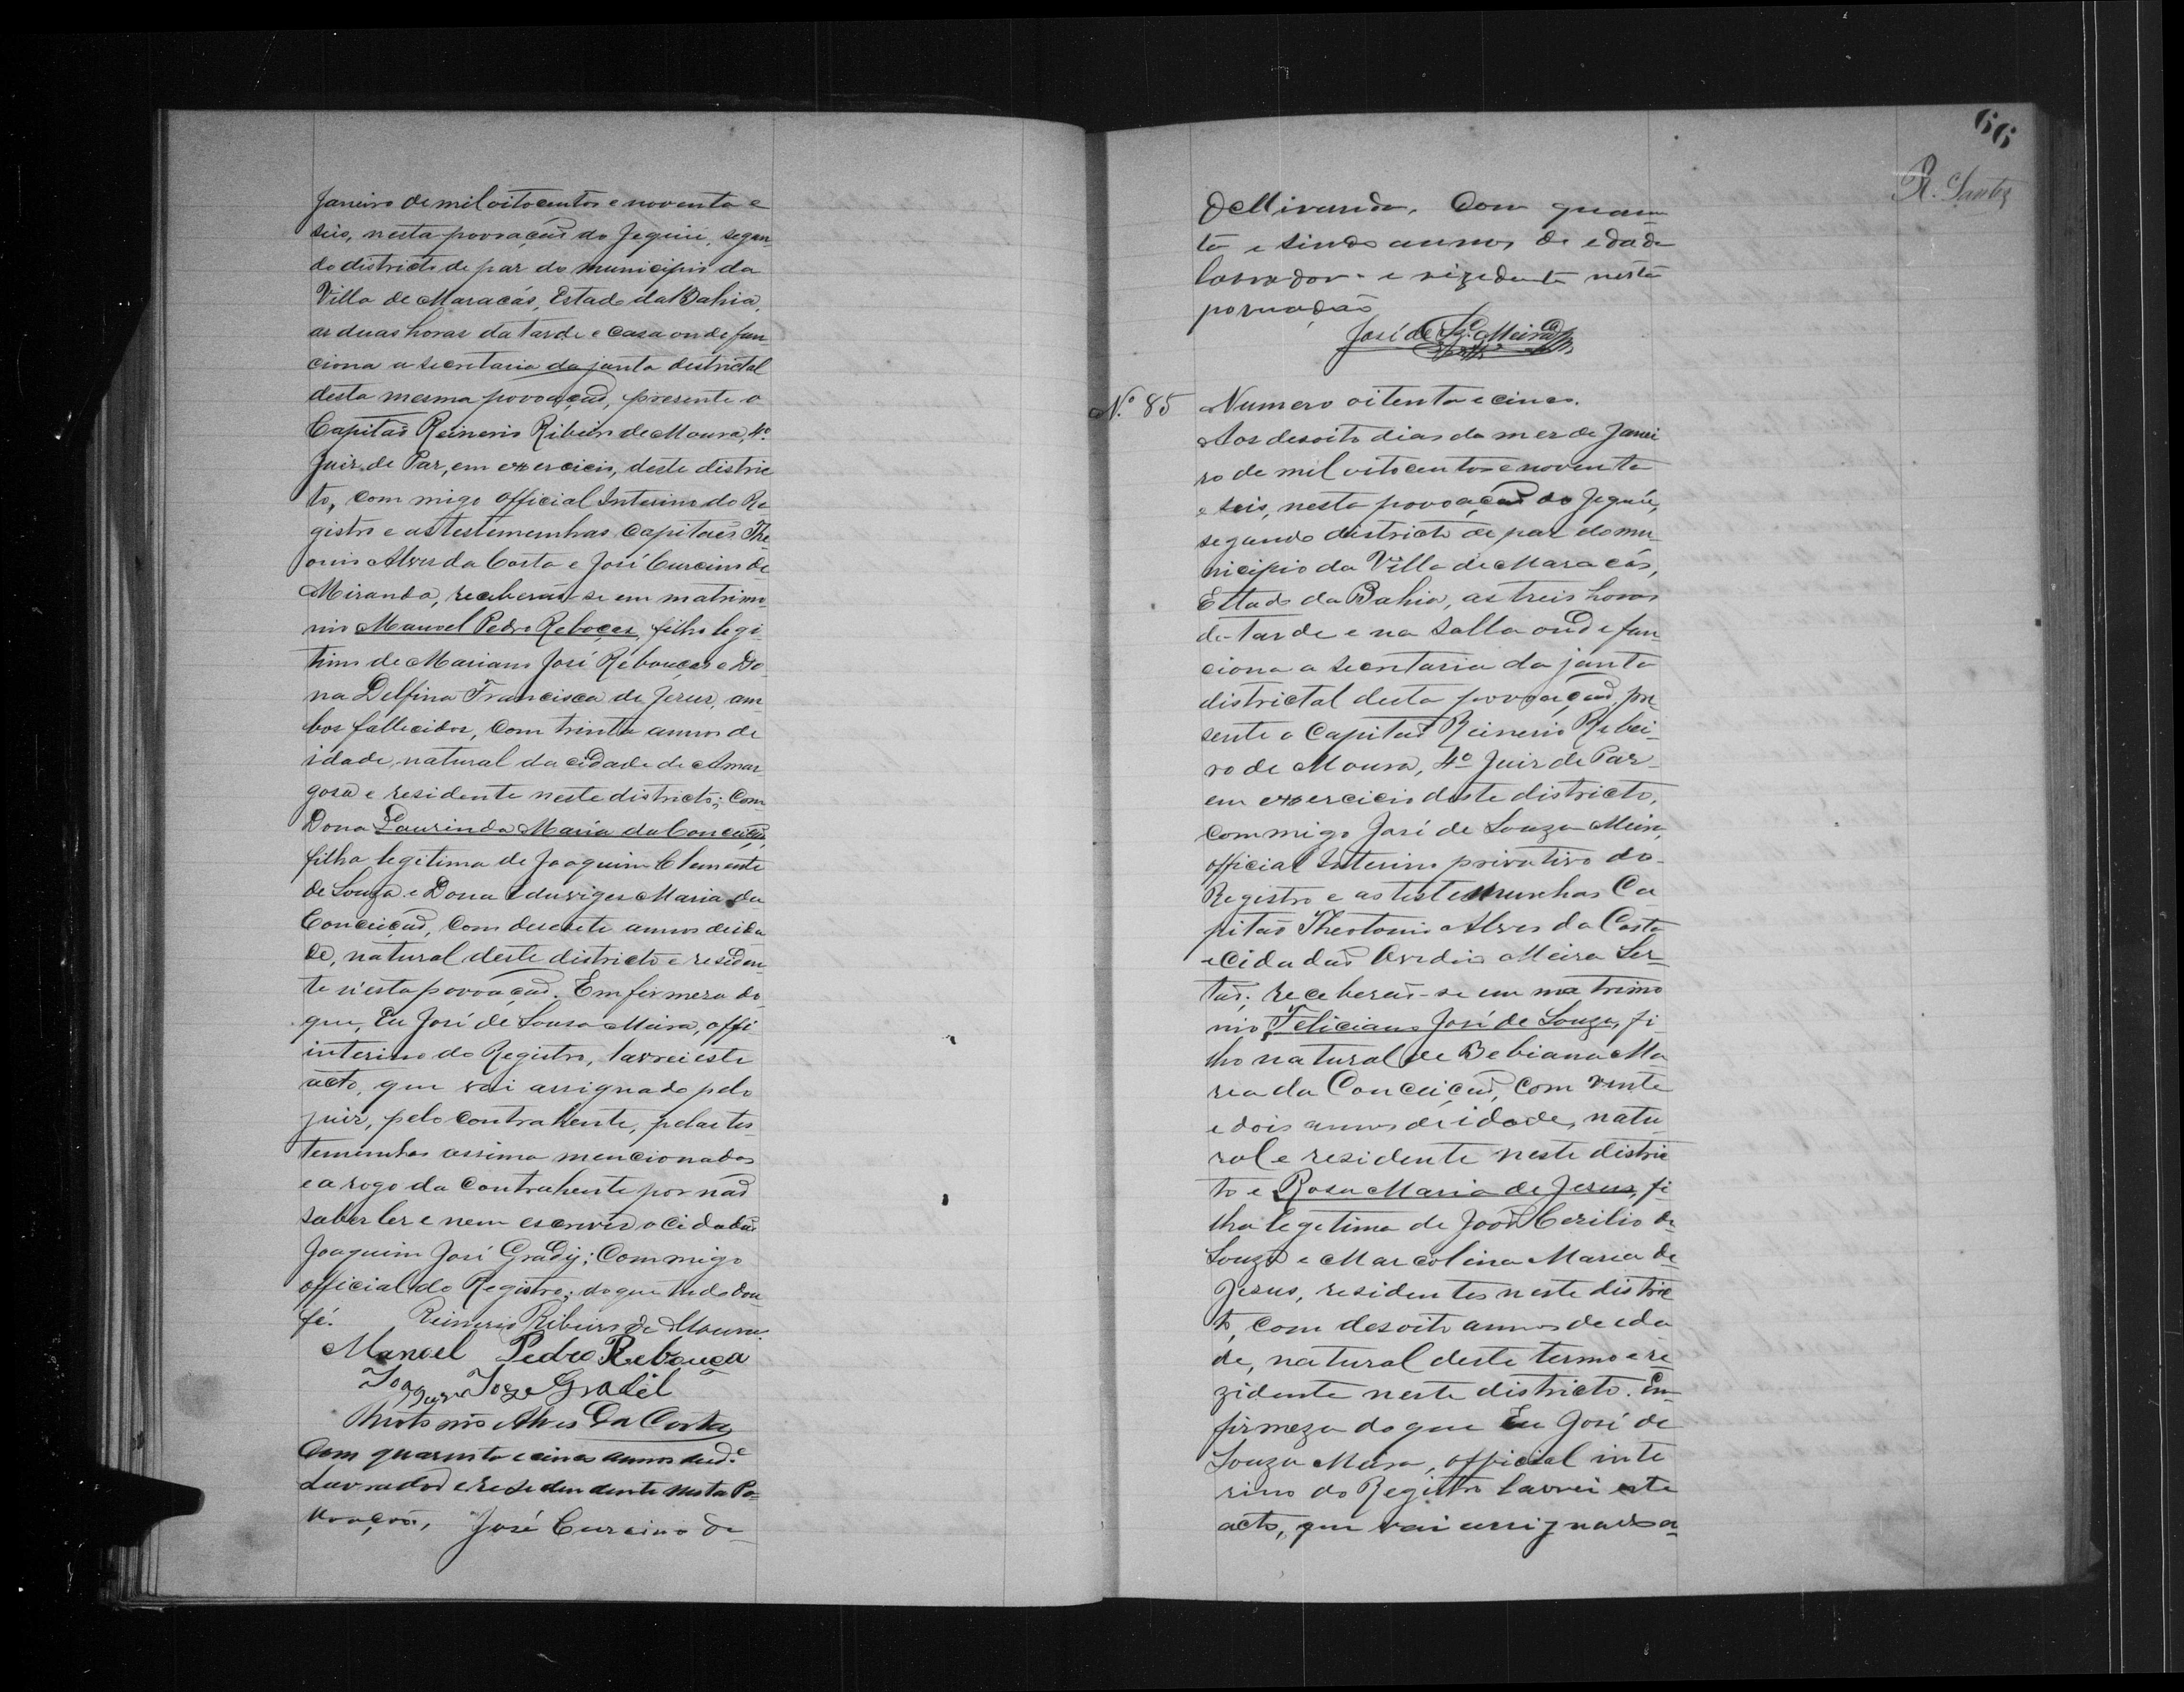 Janeiro de mil oitocentos e noventa e
seis, nesta povoação do Jequié, segun
do districto de paz do municipio da
Villa de Maracás, Estado da Bahia,
as duas horas da tarde e casa onde fun
ciona a secretaria da junta destrictal
desta mesma povoação, presente o
Capitaõ Reinerio Ribeiro de Moura, 4º
Juiz de Paz, em exercicio, deste distric
to, com migo official Interino do Re
gistro e as testemunhas Capitaẽs The
onio Alves da Costa e José Curcino de
Miranda, receberaõ-se em matrimo
nio Manoel Pedro Rebocas, filho legi
timo de Mariano José Rebouças e Do
na Delfina Francisca de Jesus, am
bos fallecidos, com trinta annos de
idade, natural da cidade de Amar
gosa e residente neste districto; com
Dona Laurinda Maria da Conceição,
filha legitima de Joaquim Clemente
de Souza e Dona Eduviges Maria da
Conceiçaõ, com desesete annos de ida
de, natural deste districto e residen
te n'esta povoaçaõ. Em firmeza do
que, Eu José de Sousa Meira, offi
interino do Registro, lavrei este
acto, que vai assignado pelo
juiz, pelo contrahente, pelas tes
temunhas assima mencionados
e a rogo da contrahente por naõ
saber ler e nem escrever o cidadaõ
Joaquim José Gradij; Commigo
official do Registro; do que tudo dou
fé. Reinerio Ribeiro de Moura
Manoel Pedro Rebouça
Joaquim Joze Gradil
Theotonio Alves Da Costa
Com quarenta e cinco annos de id.e
Lavrador e resedendente nesta Po
voação, José Curcino de
66
R. Santos
De Miranda. Com quaren
ta e sinco annos de edade
lavrador e rezedente nesta
povoação
José de Sz.ª Meira
N.º 85 Numero oitenta e cinco.
Aos desoito dias do mez de Janei
ro de mil oitocentos e noventa
e seis, nesta povoaçaõ do Jequié,
segundo districto de paz do mu
nicipio da Villa de Maracás,
Estado da Bahia, as treis horas
da tarde e na salla onde fun
ciona a secretaria da junta
districtal desta povoaçaõ, pre
sente o Capitaõ Reinerio Ribei
ro de Moura, 4º Juiz de Paz
em exercicio deste districto,
commigo José de Souza Meira,
official Interino privativo do
Registro e as testemunhas Ca
pitaõ Theotonio Alves da Costa
e Cidadaõ Ovidio Meira Ser
taõ; receberaõ-se em matrimo
nio Feliciano José de Souza, fi
lho natural de Bebiana Ma
ria da Conceiçaõ, com vinte
e dois annos de idade, natu
ral e residente neste distric
to e Rosa Maria de Jesus, fi
lha legetima de Joaõ Cezilio de
Souza e Marcolina Maria de
Jesus, residentes neste distric
to, com desoito annos de eda
de, natural deste termo e re
zidente neste districto. Em
firmeza do que Eu José de
Souza Meira, official inte
rino do Registro lavrei este
acto, que vai assignado a